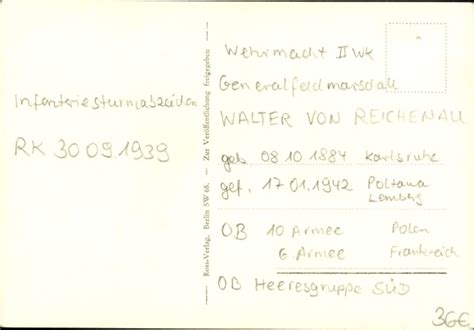 Infanteriesturmabzeichen
RK 30 09.1939
Ross-Verlag, Berlin SW 68. — Zur Veröffentlichung freigegeben
Wehrmacht II WK
Generalfeldmarsdall
WALTER VON REICHENAU
geb. 08.10.1884 Karlsruhe
gef. 17.01.1942 Poltawa
Lemberg
OB 10 Armee Polen
6. Armee Frankreich
OB Heeresgruppe SÜD
36€